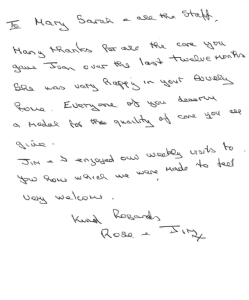 To Mary Sarah & all the Staff,
Many thanks for all the care you
gave Joan over the last twelve months
She was very happy in your lovely
home. Everyone of you deserve
a medal for the quality of care you all
give.
Jim & I enjoyed our weekly visits to
you home which we were made to feel
very welcom.
Kind Regards
Rose & Jim x